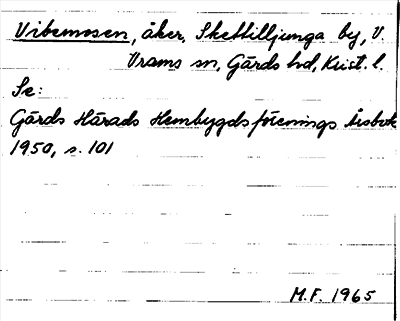 Vibemosen, åker, Skettilljunga by, V.
Vrams sn, Gärds hd, Krist. l.
Se:
Gärds Härads Hembygdsförenings Årsbok
1950, s. 101
M.F. 1965